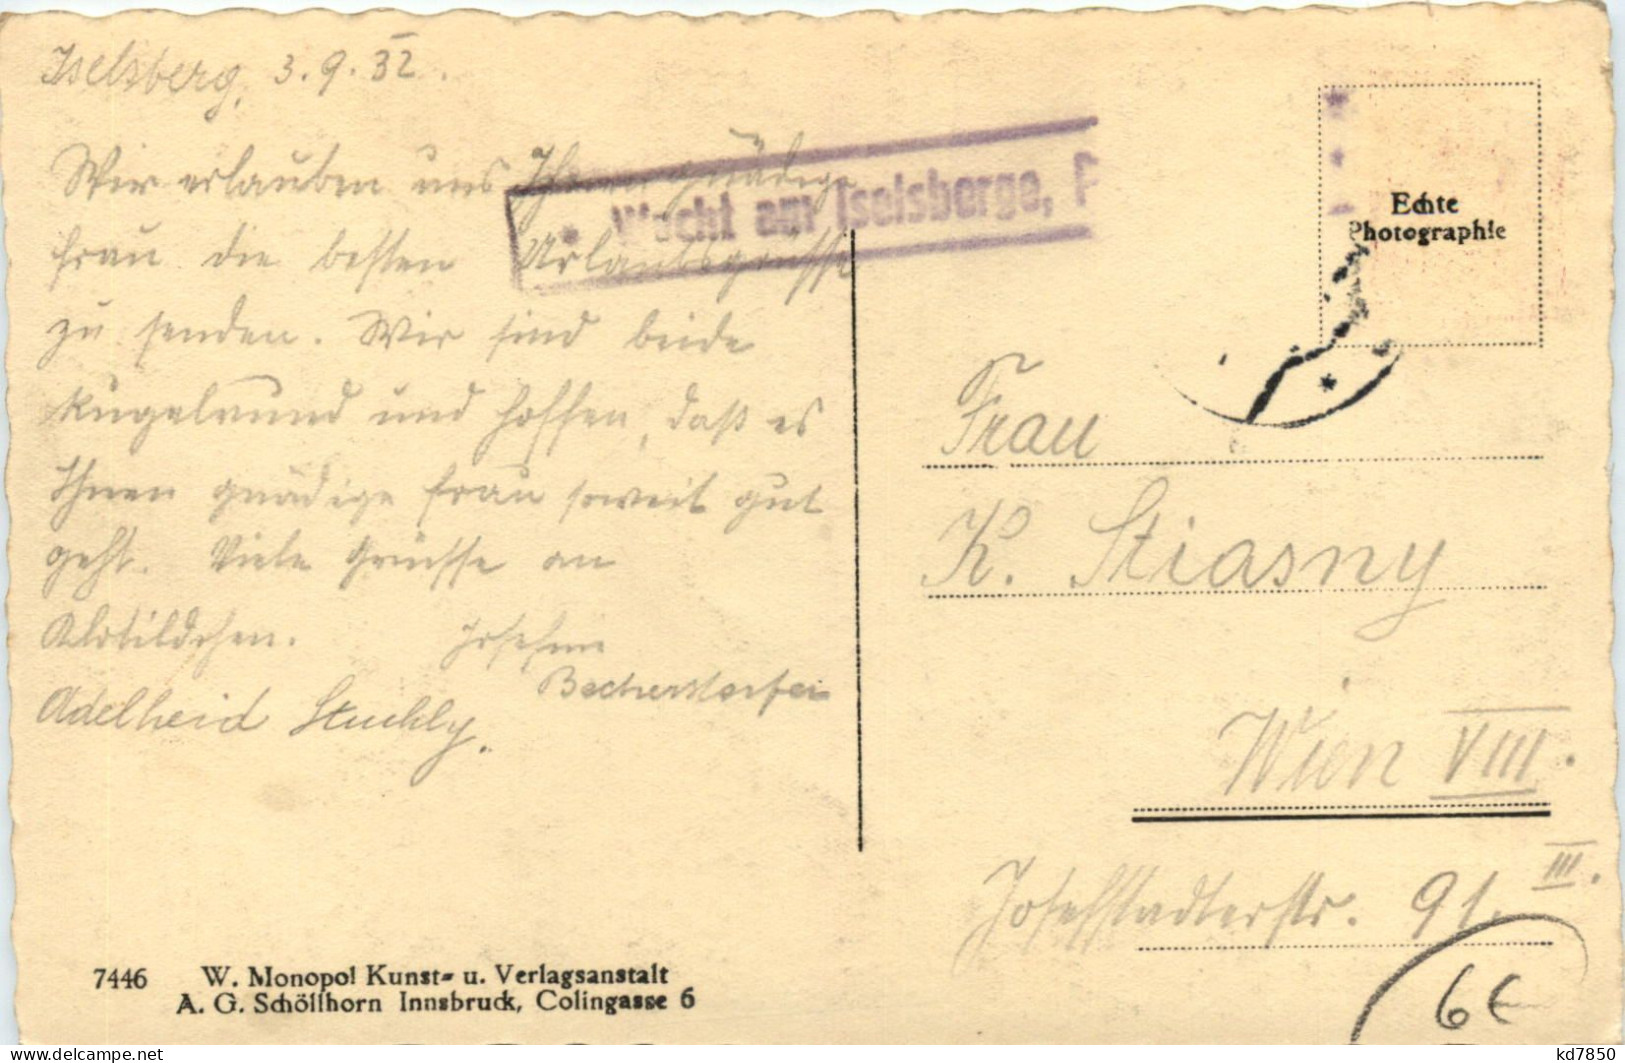 Iselsberg, 3.9.32.
Wir erlauben uns Ihnen gnädige
Frau die besten Urlaubsgrüsse
zu senden. Wir sind beide
kugelrund und hoffen, daß es
Ihnen gnädige Frau soweit gut
geht. Viele Grüsse an
Klotildchen. Josefine
Becherstorfer
Adelheid Stuchly.
* Wacht am Iselsberge, P
Echte
Photographie
Frau
K. Stiasny
Wien VIII.
Josefstädterstr. 91. III.
6€
7446 W. Monopol Kunst- u. Verlagsanstalt
A. G. Schöllhorn Innsbruck, Colingasse 6
kd7850